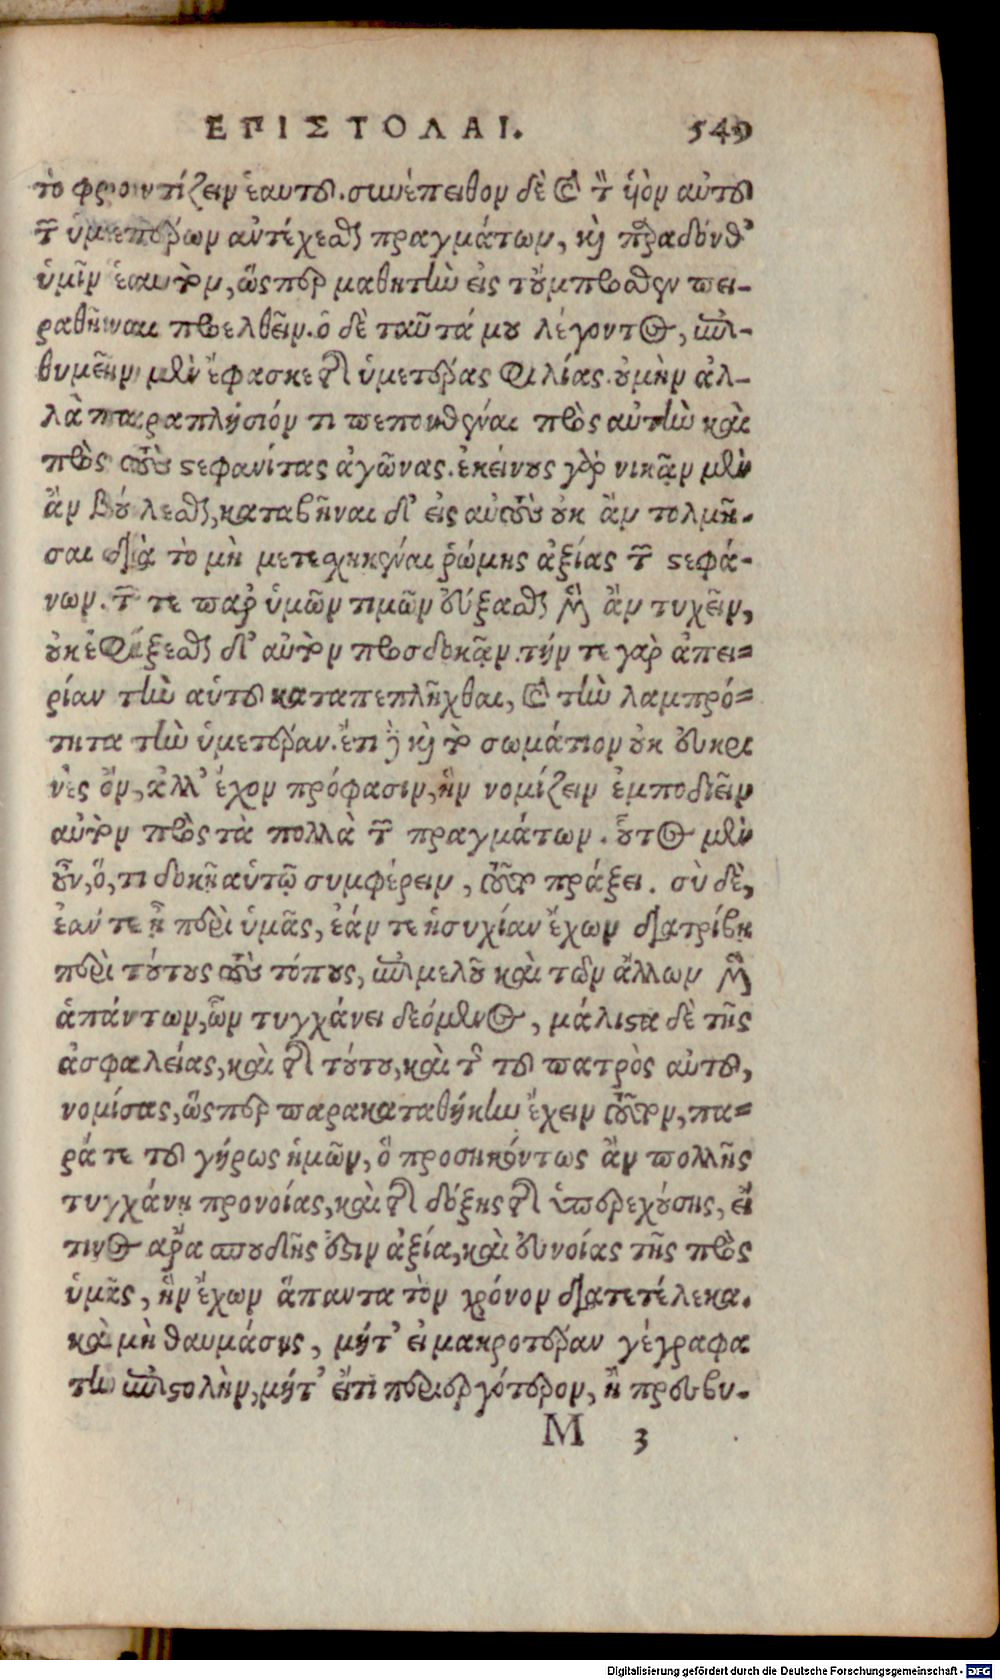 ΕΠΙΣΤΟΛΑΙ. 549
το φροντίζειν ἑαυτοῦ. συνέπειθον δὲ καὶ τὸν ὑὸν αὐτοῦ
τῶν ὑμετέρων ἀντέχεσθαι πραγμάτων, καὶ παραδόνθ᾽
ὑμῖν ἑαυτὸν, ὥσπερ μαθητὴν εἰς τοὔμπροσθεν πει-
ραθῆναι προελθεῖν. ὁ δὲ ταῦτά μου λέγοντος, ἐπι-
θυμεῖν μὲν ἔφασκε τῆς ὑμετέρας φιλίας. οὐ μὴν ἀλ-
λὰ παραπλήσιόν τι πεπονθέναι πρὸς αὐτὴν καὶ
πρὸς τοὺς στεφανίτας ἀγῶνας. ἐκείνους γὰρ νικᾷν μὲν
ἂν βούλεσθαι, καταβῆναι δ᾽ εἰς αὐτοὺς οὐκ ἂν τολμῆ-
σαι διὰ τὸ μὴ μετεσχηκέναι ῥώμης ἀξίας τῶν στεφά-
νων. τῶν τε παρ᾽ ὑμῶν τιμῶν εὔξασθαι μὲν ἂν τυχεῖν,
οὐκ ἐφίξεσθαι δ᾽ αὐτῶν προσδοκᾷν. τήν τε γὰρ ἀπει-
ρίαν τὴν αὑτοῦ καταπεπλῆχθαι, καὶ τὴν λαμπρό-
τητα τὴν ὑμετέραν. ἔτι δὲ καὶ τὸ σωμάτιον οὐκ εὐκρι
νὲς ὂν, ἀλλ᾽ ἔχον πρόφασιν, ἣν νομίζειν ἐμποδιεῖν
αὐτὸν πρὸς τὰ πολλὰ τῶν πραγμάτων. οὗτος μὲν
οὖν, ὅ, τι δοκῇ αὑτῷ συμφέρειν, τοῦτο πράξει. σὺ δὲ,
ἐάν τε ᾖ περὶ ὑμᾶς, ἐάν τε ἡσυχίαν ἔχων διατρίβῃ
περὶ τούτους τοὺς τόπους, ἐπιμελοῦ καὶ τῶν ἄλλων μὲν
ἁπάντων, ὧν τυγχάνει δεόμενος, μάλιστα δὲ τῆς
ἀσφαλείας, καὶ τῆς τούτου, καὶ τῆς τοῦ πατρὸς αὐτοῦ,
νομίσας, ὥσπερ παρακαταθήκην ἔχειν τοῦτον, πα-
ρά τε τοῦ γήρως ἡμῶν, ὃ προσηκόντως ἂν πολλῆς
τυγχάνῃ προνοίας, καὶ τῆς δόξης τῆς ὑπερεχούσης, εἴ
τινος ἄρα σπουδῆς ἐστιν ἀξία, καὶ εὐνοίας τῆς πρὸς
ὑμᾶς, ἣν ἔχων ἅπαντα τὸν χρόνον διατετέλεκα.
καὶ μὴ θαυμάσῃς, μήτ᾽ εἰ μακροτέραν γέγραφα
τὴν ἐπιστολὴν, μήτ᾽ εἴ τι περιεργότερον, ἢ πρεσβυ-
M 3
Digitalisierung gefördert durch die Deutsche Forschungsgemeinschaft - DFG